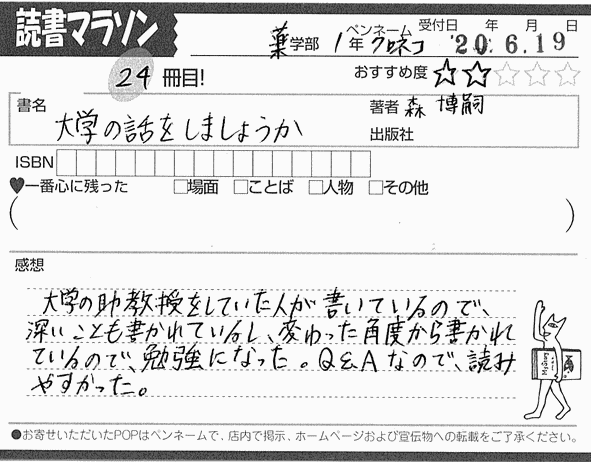 読書マラソン
薬学部 1年 ペンネーム クロネコ 受付日 年 月 日 '20. 6.19
24 冊目! おすすめ度 ☆☆☆☆☆
書名 大学の話をしましょうか 著者 森 博嗣
出版社
ISBN
♥一番心に残った □場面 □ことば □人物 □その他
( )
感想
大学の助教授をしていた人が書いているので、
深いことも書かれているし、変わった角度から書かれ
ているので、勉強になった。Q&Aなので、読み
やすかった。
●お寄せいただいたPOPはペンネームで、店内で掲示、ホームページおよび宣伝物への転載をご了承ください。